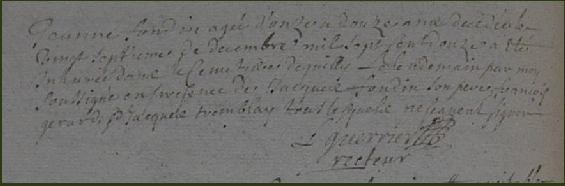 Jeanne fondin agée d'onze a douze ans decedée le
vingt septieme de decembre mil sept cent douze a este
inhumée dans le Cemetiere le lendemain par moy
soussigné en presence de Jacques fondin son pere, francois
gerard, et jacques tremblay tous lesquels ne scavent signer
guerrier
recteur